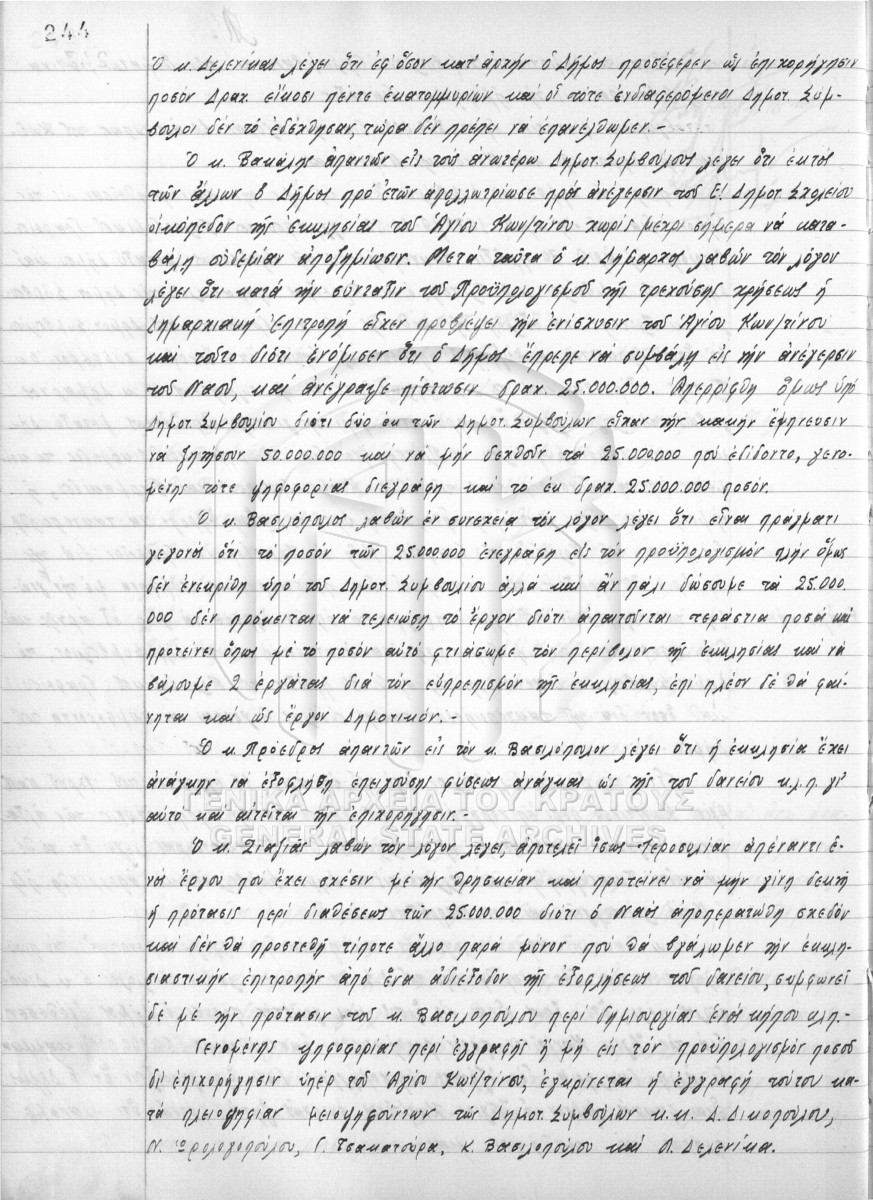 244
Ὁ κ. Δελενίκας λέγει ὅτι ἐφ' ὅσον κατ' ἀρχήν ὁ Δῆμος προσέφερεν ὡς ἐπιχορήγησιν
ποσόν Δραχ. εἴκοσι πέντε ἑκατομμυρίων καί οἱ τότε ἐνδιαφερόμενοι Δημοτ. Σύμ-
βουλοι δέν τό ἐδέχθησαν, τώρα δέν πρέπει νά ἐπανέλθωμεν.-
Ὁ κ. Βακάλης ἀπαντῶν εἰς τούς ἀνωτέρω Δημοτ. Συμβούλους λέγει ὅτι ἐκτός
τῶν ἄλλων ὁ Δῆμος πρό ἐτῶν ἀπολλωτρίωσε πρός ἀνέγερσιν τοῦ Ε! Δημοτ. Σχολείου
οἰκόπεδον τῆς ἐκκλησίας τοῦ Ἁγίου Κων/τίνου χωρίς μέχρι σήμερα νά κατα-
βάλῃ οὐδεμίαν ἀποζημίωσιν. Μετά ταῦτα ὁ κ. Δήμαρχος λαβών τόν λόγον
λέγει ὅτι κατά τήν σύνταξιν τοῦ Προϋπολογισμοῦ τῆς τρεχούσης χρήσεως ἡ
Δημαρχιακή Ἐπιτροπή εἶχεν προβλέψει τήν ἐνίσχυσιν τοῦ Ἁγίου Κων/τίνου
καί τοῦτο διότι ἐνόμισεν ὅτι ὁ Δῆμος ἔπρεπε νά συμβάλῃ εἰς τήν ἀνέγερσιν
τοῦ Ναοῦ, καί ἀνέγραψε πίστωσιν δραχ. 25.000.000. Ἀπερρίφθη ὅμως ὑπό
Δημοτ. Συμβουλίου διότι δύο ἐκ τῶν Δημοτ. Συμβούλων εἶχαν τήν κακήν ἔμπνευσιν
νά ζητήσουν 50.000.000 καί νά μήν δεχθοῦν τά 25.000.000 πού ἐδίδοντο, γενο-
μένης τότε ψηφοφορίας διεγράφη καί τό ἐκ δραχ. 25.000.000 ποσόν.
Ὁ κ. Βασιλόπουλος λαβών ἐν συνεχείᾳ τόν λόγον λέγει ὅτι εἶναι πράγματι
γεγονός ὅτι τό ποσόν τῶν 25.000.000 ἐνεγράφη εἰς τόν προϋπολογισμόν πλήν ὅμως
δέν ἐνεκρίθη ὑπό τοῦ Δημοτ. Συμβουλίου ἀλλά καί ἄν πάλι δώσουμε τά 25.000.
000 δέν πρόκειται νά τελειώσῃ τό ἔργον διότι ἀπαιτοῦνται τεράστια ποσά καί
προτείνει ὅπως μέ τό ποσόν αὐτό φτιάσωμε τόν περίβολον τῆς ἐκκλησίας καί νά
βάλουμε 2 ἐργάτας διά τόν εὐπρεπισμόν τῆς ἐκκλησίας, ἐπί πλέον δέ θά φαί-
νηται καί ὡς ἔργον Δημοτικόν.-
Ὁ κ. Πρόεδρος ἀπαντῶν εἰς τόν κ. Βασιλόπουλον λέγει ὅτι ἡ ἐκκλησία ἔχει
ἀνάγκην νά ἐξοφλήσῃ ἐπειγούσης φύσεως ἀνάγκας ὡς τῆς τοῦ δανείου κ.λ.π. γι'
αὐτό καί αἰτεῖται τήν ἐπιχορήγησιν.-
ΓΕΝΙΚΑ ΑΡΧΕΙΑ ΤΟΥ ΚΡΑΤΟΥΣ
GENERAL STATE ARCHIVES
Ὁ κ. Σιαξιᾶς λαβών τόν λόγον λέγει, ἀποτελεῖ ἴσως Ἱεροσυλίαν ἀπέναντι ἑ-
νός ἔργου πού ἔχει σχέσιν μέ τήν θρησκείαν καί προτείνει νά μήν γίνῃ δεκτή
ἡ πρότασις περί διαθέσεως τῶν 25.000.000 διότι ὁ Ναός ἀποπερατώθη σχεδόν
καί δέν θά προστεθῇ τίποτε ἄλλο παρά μόνον πού θά βγάλωμεν τήν ἐκκλη-
σιαστικήν ἐπιτροπήν ἀπό ἕνα ἀδιέξοδον τῆς ἐξοφλήσεως τοῦ δανείου, συμφωνεῖ
δέ μέ τήν πρότασιν τοῦ κ. Βασιλοπούλου περί δημιουργίας ἑνός κήπου κλπ.-
Γενομένης ψηφοφορίας περί ἐγγραφῆς ἤ μή εἰς τόν προϋπολογισμόν ποσοῦ
δι' ἐπιχορήγησιν ὑπέρ τοῦ Ἁγίου Κων/τίνου, ἐγκρίνεται ἡ ἐγγραφή τούτου κα-
τά πλειοψηφίαν μειοψηφούντων τῶν Δημοτ. Συμβούλων κ.κ. Δ. Δικοπούλου,
Ν. Ὡρολογοπούλου, Γ. Τσακατούρα, Κ. Βασιλοπούλου καί Λ. Δελενίκα.